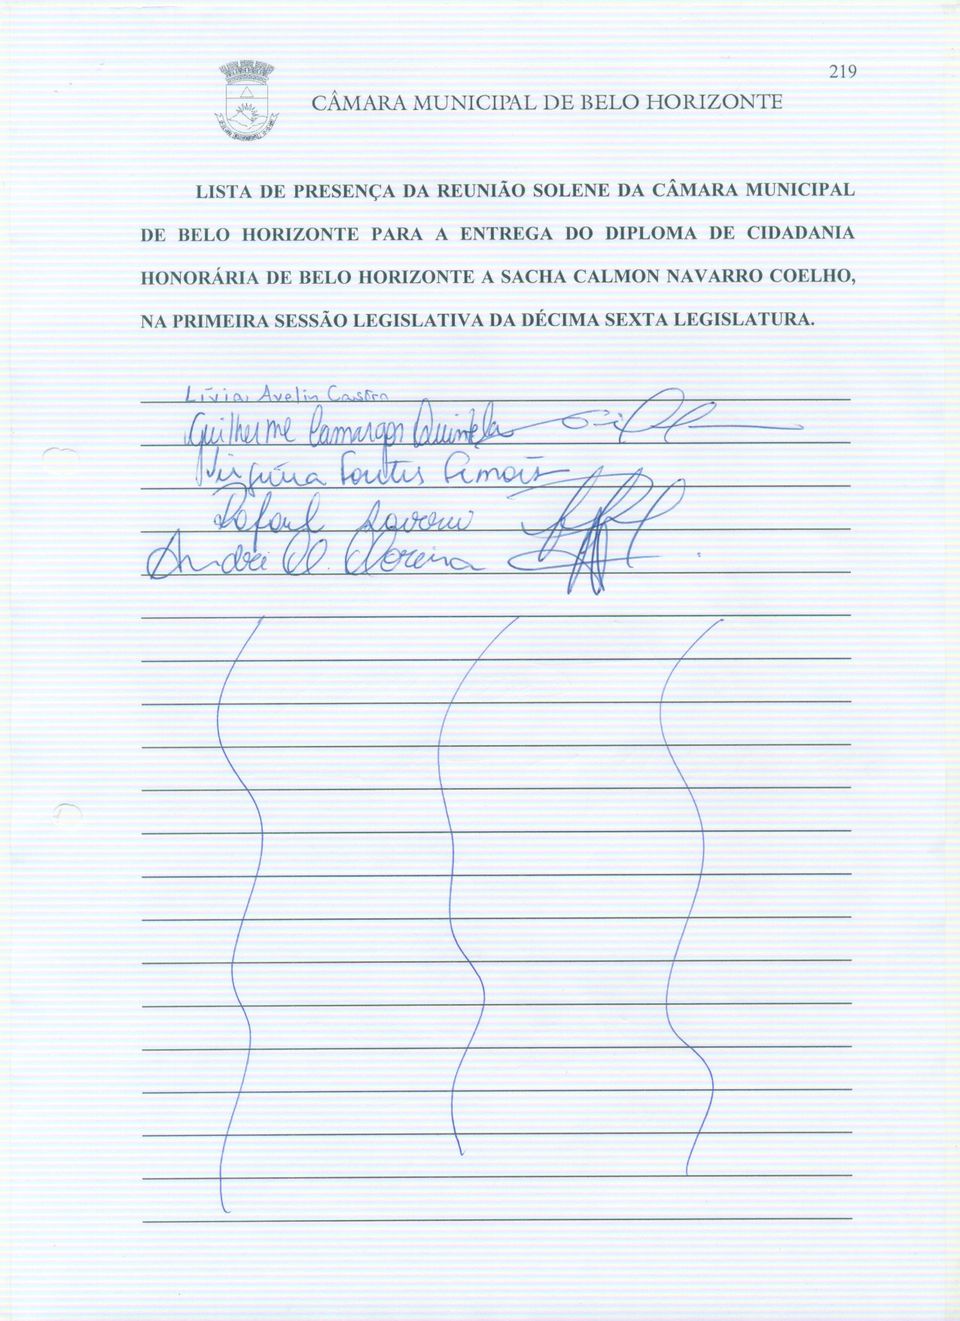 219
CÂMARA MUNICIPAL DE BELO HORIZONTE
LISTA DE PRESENÇA DA REUNIÃO SOLENE DA CÂMARA MUNICIPAL
DE BELO HORIZONTE PARA A ENTREGA DO DIPLOMA DE CIDADANIA
HONORÁRIA DE BELO HORIZONTE A SACHA CALMON NAVARRO COELHO,
NA PRIMEIRA SESSÃO LEGISLATIVA DA DÉCIMA SEXTA LEGISLATURA.
Lívia Avelin Castro
Guilherme Camargos Quintela
Virgínia
Rafael
Andrei Moreira